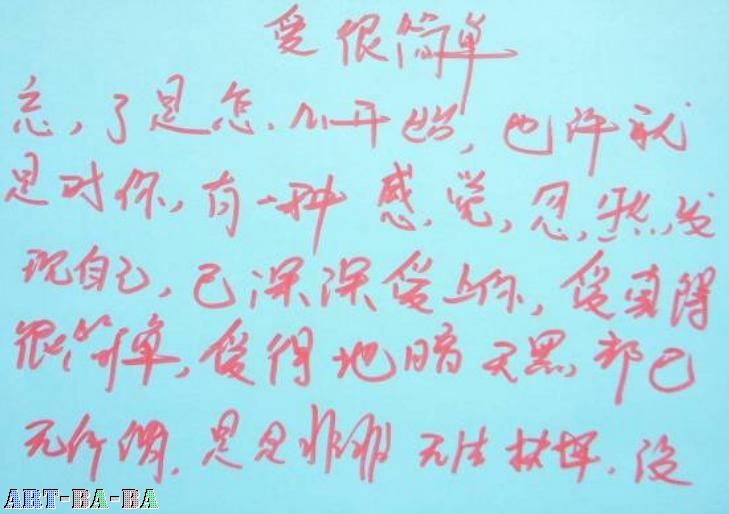 爱很简单
忘了是怎么开始，也许就
是对你，有一种感觉，忽然发
现自己，已深深爱上你，爱真得
很简单，爱得地暗天黑，都已
无所谓，是是非非无法抉择．没
ART-BA-BA